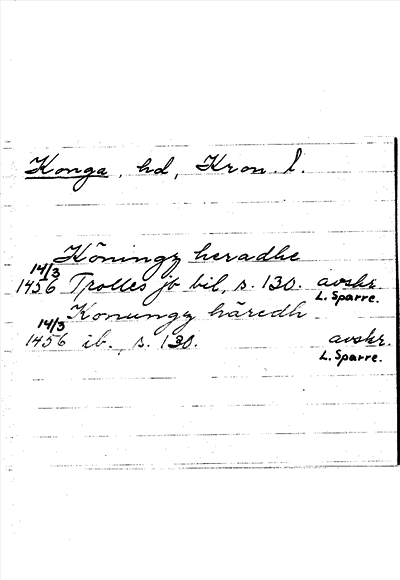 Konga, hd, Kron. l.
Köningz heradhe
14/3
1456 Trolles jb bil, s. 130. avskr.
L. Sparre.
Konungz häredh
14/3
1456 ib., s. 130. avskr.
L. Sparre.